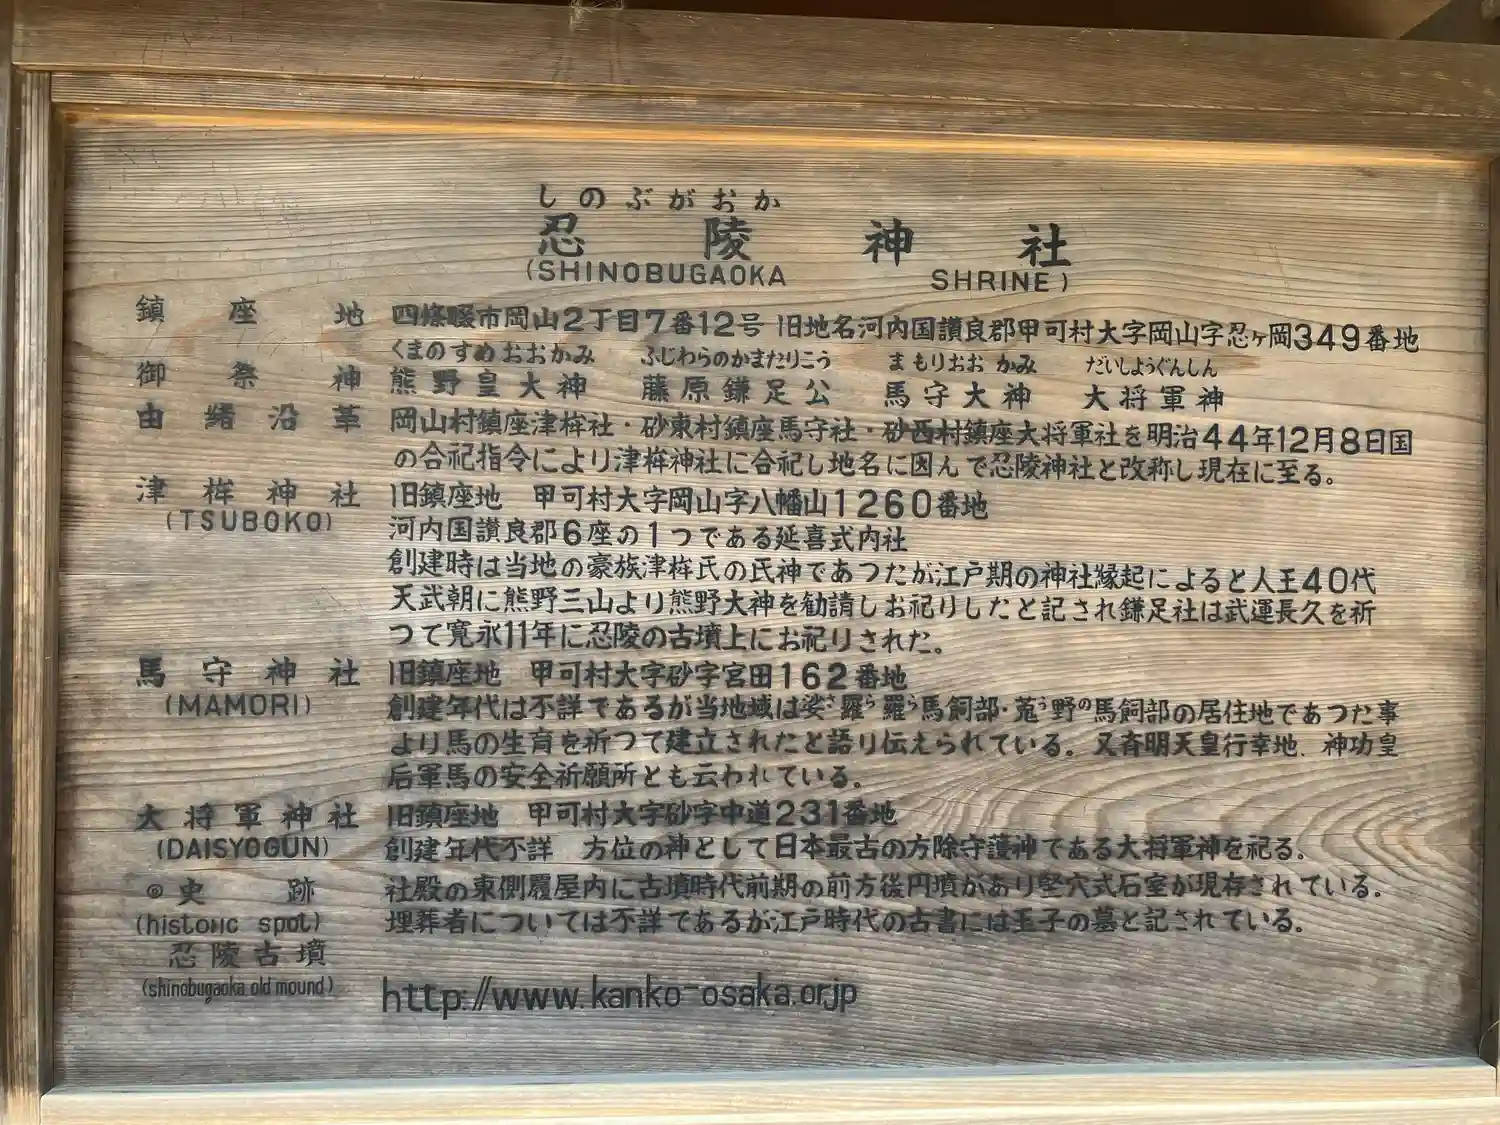 しのぶがおか
忍陵神社
(SHINOBUGAOKA SHRINE)
鎮座地 四條畷市岡山2丁目7番12号 旧地名河内国讃良郡甲可村大字岡山字忍ヶ岡349番地
くまのすめおおかみ ふじわらのかまたりこう まもりおおかみ だいしようぐんしん
御祭神 熊野皇大神 藤原鎌足公 馬守大神 大将軍神
由緒沿革 岡山村鎮座津桙社・砂東村鎮座馬守社・砂西村鎮座大将軍社を明治44年12月8日国
の合祀指令により津桙神社に合祀し地名に因んで忍陵神社と改称し現在に至る。
津桙神社 旧鎮座地 甲可村大字岡山字八幡山1260番地
(TSUBOKO) 河内国讃良郡6座の1つである延喜式内社
創建時は当地の豪族津桙氏の氏神であつたが江戸期の神社縁起によると人王40代
天武朝に熊野三山より熊野大神を勧請しお祀りしたと記され鎌足社は武運長久を祈
つて寛永11年に忍陵の古墳上にお祀りされた。
馬守神社 旧鎮座地 甲可村大字砂字宮田162番地
(MAMORI) 創建年代は不詳であるが当地域は娑さ羅ら羅ら馬飼部・菟う野の馬飼部の居住地であつた事
より馬の生育を祈つて建立されたと語り伝えられている。又斉明天皇行幸地、神功皇
后軍馬の安全祈願所とも云われている。
大将軍神社 旧鎮座地 甲可村大字砂字中道231番地
(DAISYOGUN) 創建年代不詳 方位の神として日本最古の方除守護神である大将軍神を祀る。
◎史跡 社殿の東側履屋内に古墳時代前期の前方後円墳があり竪穴式石室が現存されている。
(historic spot) 埋葬者については不詳であるが江戸時代の古書には王子の墓と記されている。
忍陵古墳
(shinobugaoka old mound) http://www.kanko-osaka.or.jp